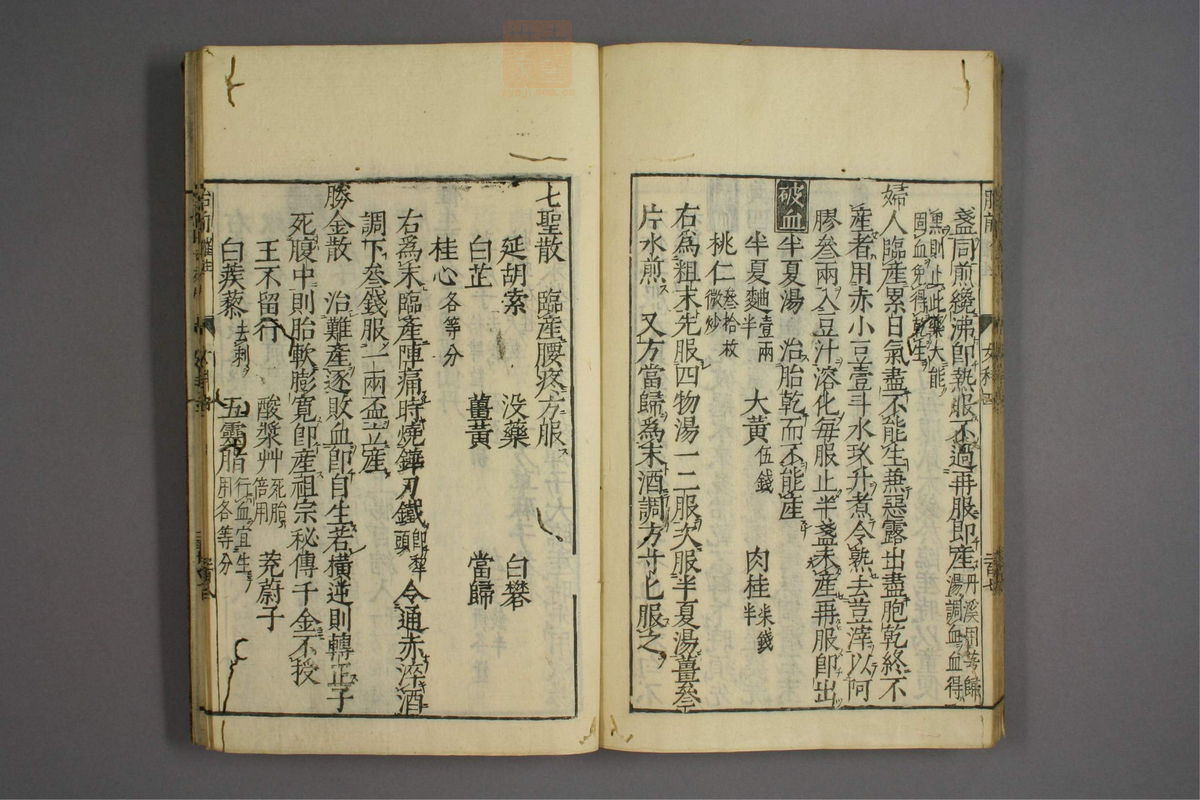 盞同煎纔沸卽熱服不過再服卽産丹溪用芎歸湯調血血得
黒則止此藥大能固血免得乾生
婦人臨産累日氣盡不能生兼惡露出盡胞乾終不
産者用赤小豆壹斗水玖升煮令熟去荳滓以阿
膠叁兩入豆汁溶化毎服止半盞未産再服卽出
破血半夏湯 治胎乾而不能産
半夏麯壹兩半 大黃伍錢 肉桂柒錢半
桃仁叁拾枚微炒
右為粗末先服四物湯一二服次服半夏湯薑叁
片水煎 又方當歸為末酒調方寸匕服之
七聖散 臨産腰疼方服
延胡索 没藥 白礬
白芷 薑黃 當歸
桂心各等分
右為末臨産陣痛時燒鏵刃鐵卽犂頭令通赤淬酒
調下叁錢服一兩盃立産
勝金散 治難産逐敗血卽自生若横逆則轉正子
死腹中則胎軟膨寛卽産祖宗秘傳千金不授
王不留行 酸漿艸死胎倍用 茺蔚子
白蒺藜去刺 五靈脂行血宜生用各等分